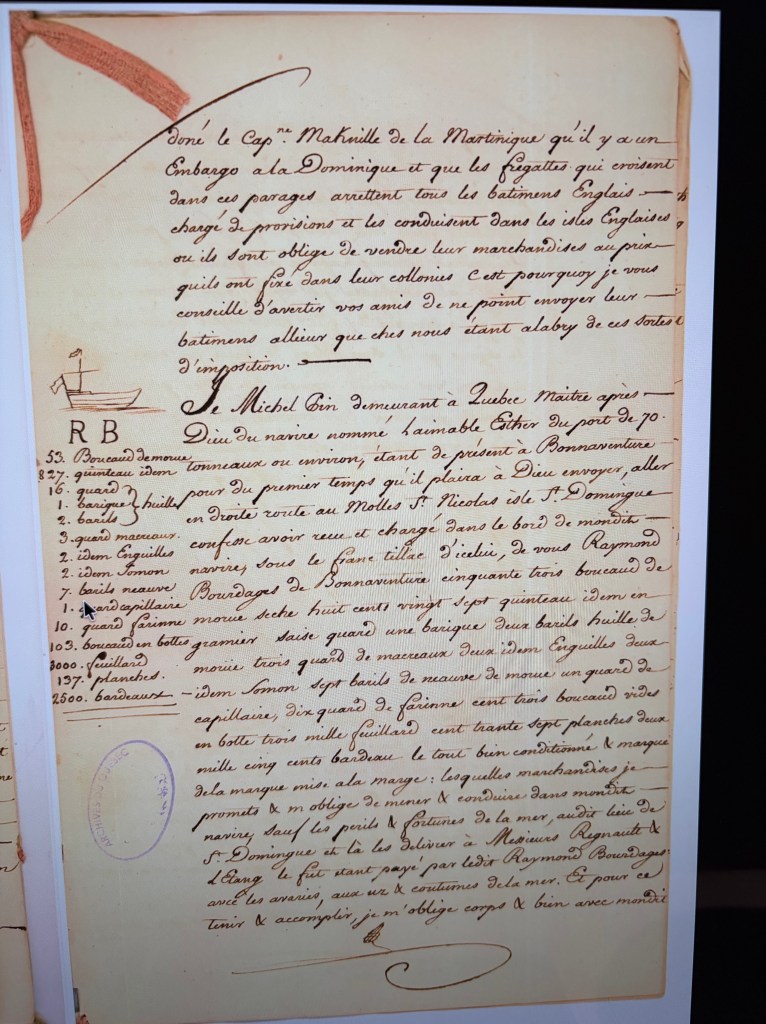 doné le Cap.ne MaKnille de la Martinique qu'il y a un
Embargo a la Dominique et que les fregattes qui croisent
dans ces parages arrettent tous les batimens Englais
chargé de provisions et les conduisent dans les isles Englaises
ou ils sont oblige de vendre leur marchandises au prix
quils ont fixé dans leur collonies c'est pourquoy je vous
conseille d'avertir vos amis de ne point envoyer leur
batimens allieur que ches nous étant alabry de ces sortes
d'imposition.
Je Michel Pin demeurant à Quebec Maitre après
Dieu du navire nommé Laimable Esther du port de 70.
tonneaux ou environ, étant de présent à Bonnaventure
pour du premier temps qu'il plaira à Dieu envoyer, aller
en droite route au Molles St. Nicolas isle St. Domingue
confesse avoir reçu et chargé dans le bord de mondit
navire, sous le franc tillac d'icelui, de vous Raymond
Bourdages de Bonnaventure cinquante trois boucaud de
morue seche huit cents vingt sept quinteau idem en
gramier saise quard une barique deux barils huille de
moruë trois quard de macreaux deux idem Enguilles deux
idem Somon sept barils de neauve de morue un quard de
capillaire, dix quard de farinne cent trois boucaud vides
en botte trois mille feuillard cent trante sept planches deux
mille cinq cents bardeau le tout bien conditionné & marqué
dela marque mise a la marge : lesquelles marchandises je
promets & m'oblige de mener & conduire dans mondit
navire, sauf les perils & fortunes de la mer, audit lieu de
St. Domingue et là les delivrer à Messieurs Regnault &
L'Etang le fret etant payé par ledit Raymond Bourdages
avec les avaries, aux uz & coutumes de la mer. Et pour ce
tenir & accomplir, je m'oblige corps & bien avec mondit
R B
53. Boucaud de morue
827. quinteau idem
16. quard
1. barique } huille
2. barils
3. quard macreaux
2. idem Enguilles
2. idem Somon
7. barils neauve
1. quard capillaire
10. quard farinne
103. boucaud en bottes
3000. feuillard
137. planches.
2500. bardeaux
ARCHIVES DU QUEBEC